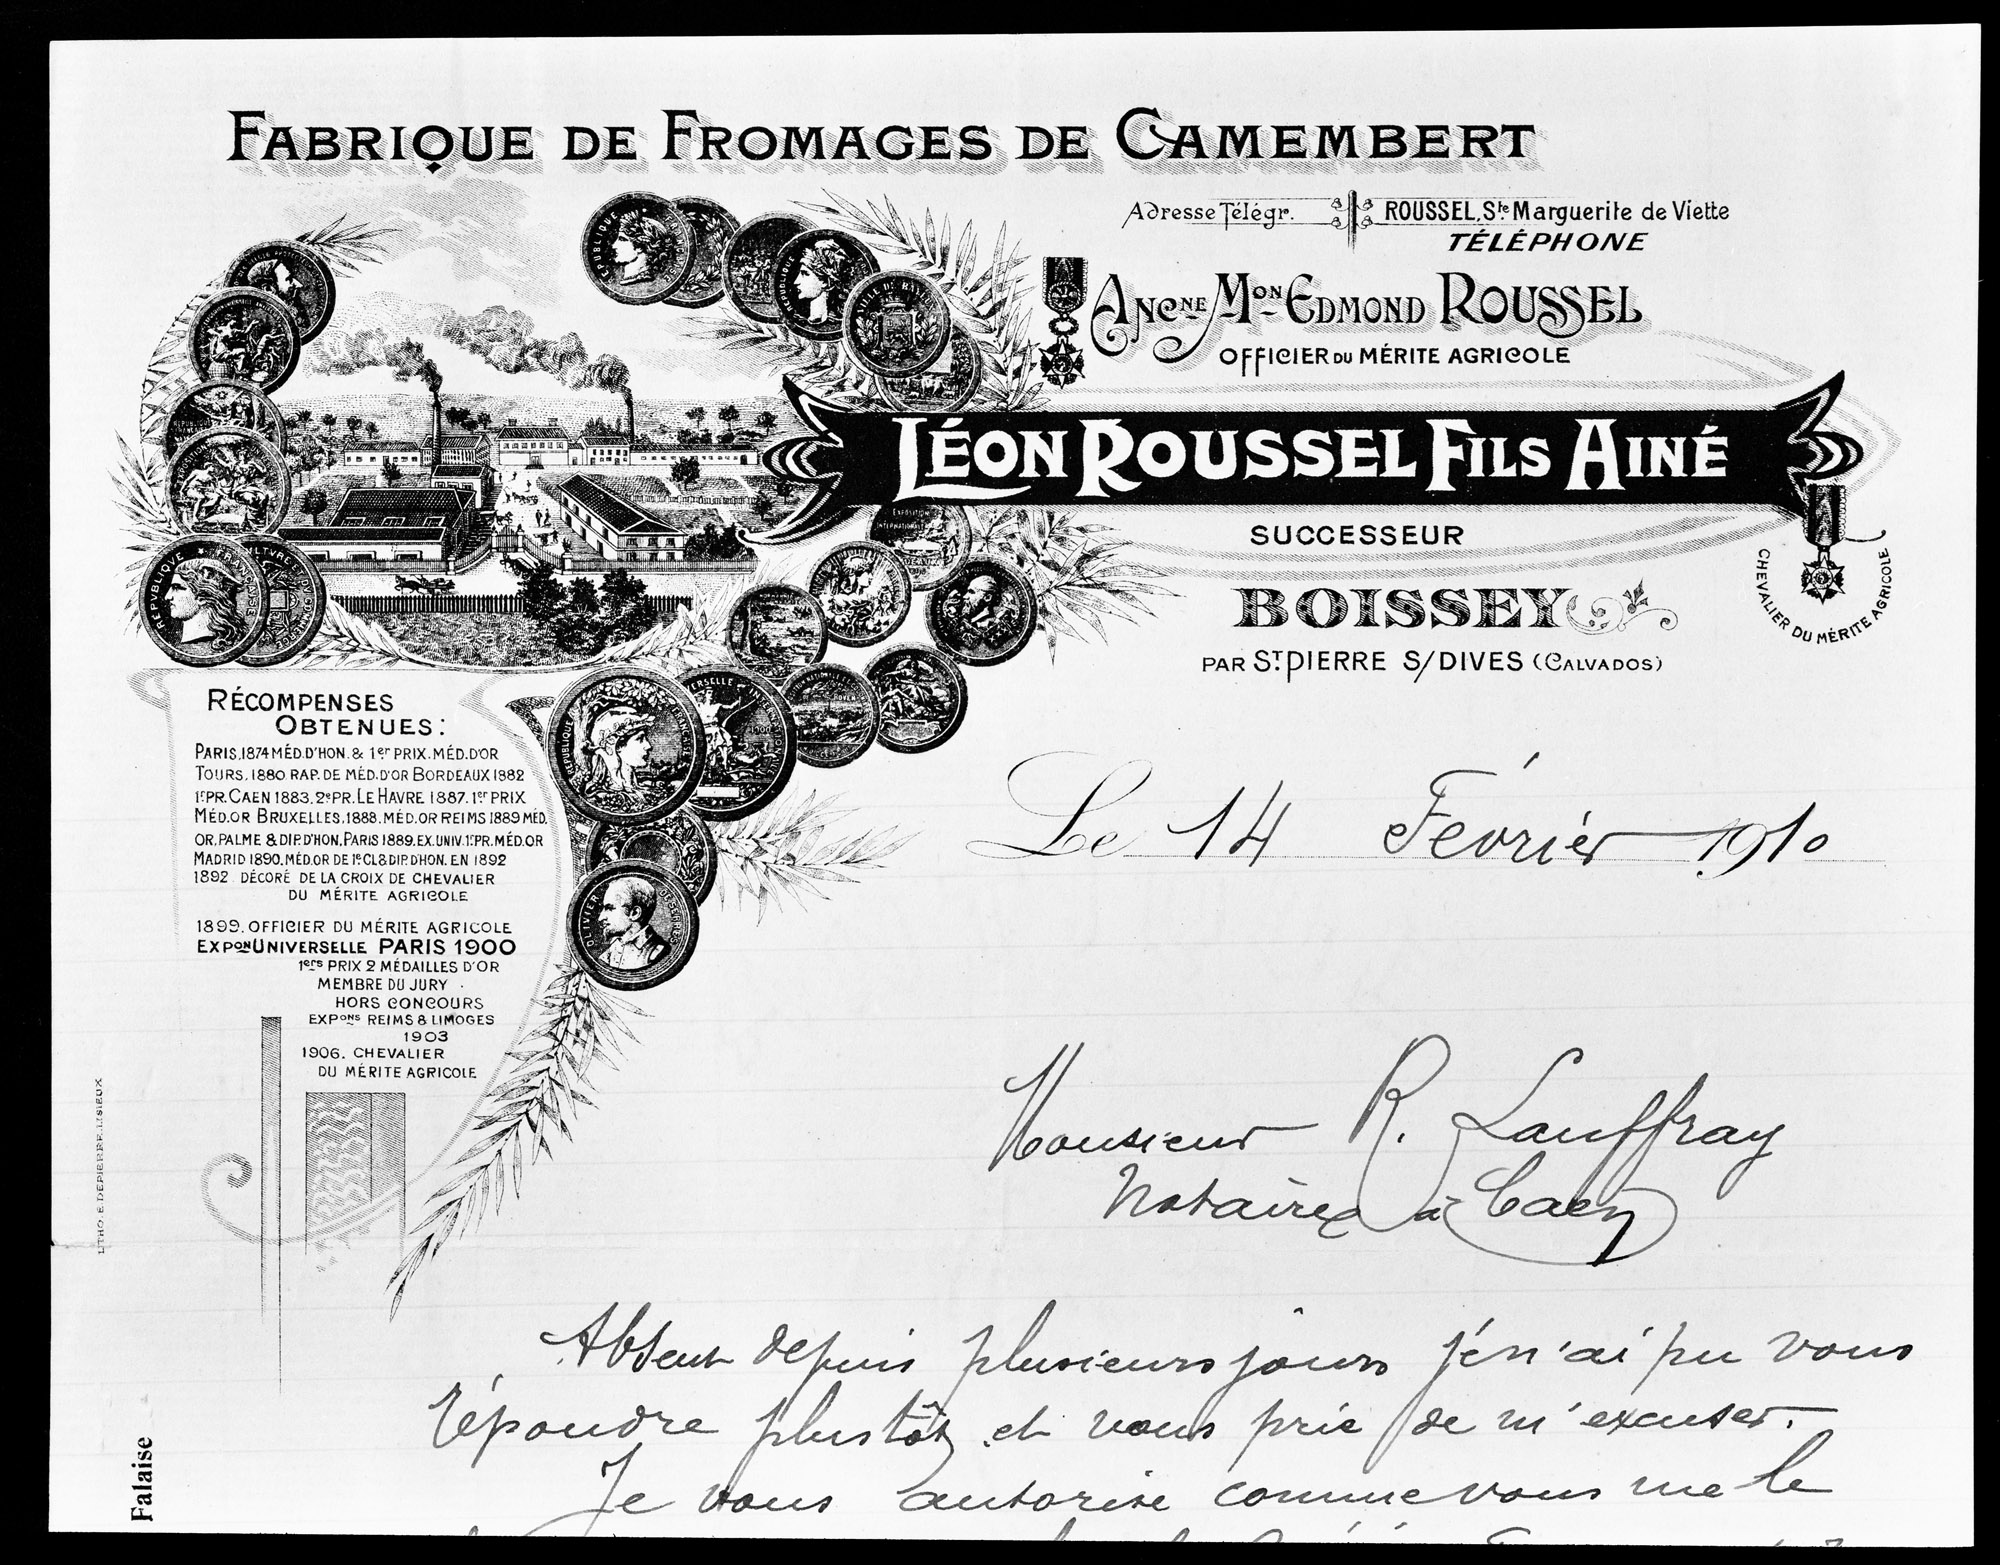 FABRIQUE DE FROMAGES DE CAMEMBERT
Adresse Télégr. ROUSSEL, Ste Marguerite de Viette
TÉLÉPHONE
ANCNE MON EDMOND ROUSSEL
OFFICIER DU MÉRITE AGRICOLE
LÉON ROUSSEL FILS AINÉ
SUCCESSEUR
CHEVALIER DU MÉRITE AGRICOLE
BOISSEY
PAR ST PIERRE S/DIVES (CALVADOS)
RÉCOMPENSES
OBTENUES:
PARIS, 1874 MÉD. D'HON. & 1er PRIX. MÉD. D'OR
TOURS, 1880 RAP. DE MÉD. D'OR BORDEAUX 1882
1r PR. CAEN 1883. 2e PR. LE HAVRE 1887. 1er PRIX
MÉD. OR BRUXELLES, 1888. MÉD. OR REIMS 1889 MÉD.
OR, PALME & DIP. D'HON, PARIS 1889. EX. UNIV. 1r PR. MÉD. OR
MADRID 1890, MÉD. OR DE 1e CL & DIP. D'HON. EN 1892
1892 DÉCORÉ DE LA CROIX DE CHEVALIER
DU MÉRITE AGRICOLE
1899. OFFICIER DU MÉRITE AGRICOLE
EXPON UNIVERSELLE PARIS 1900
1ers PRIX 2 MÉDAILLES D'OR
MEMBRE DU JURY
HORS CONCOURS
EXPONS REIMS & LIMOGES
1903
1906. CHEVALIER
DU MÉRITE AGRICOLE
REPUBLIQUE
REPUBLIQUE FRANÇAISE
OLIVIER DE SERRES
LITHO. E. DEPIERRE. LISIEUX
Falaise
Le 14 Février 1910
Monsieur R. Lauffray
Notaire à Caen
Absent depuis plusieurs jours je n'ai pu vous
répondre plustôt et vous prie de m'excuser.
Je vous autorise comme vous me le